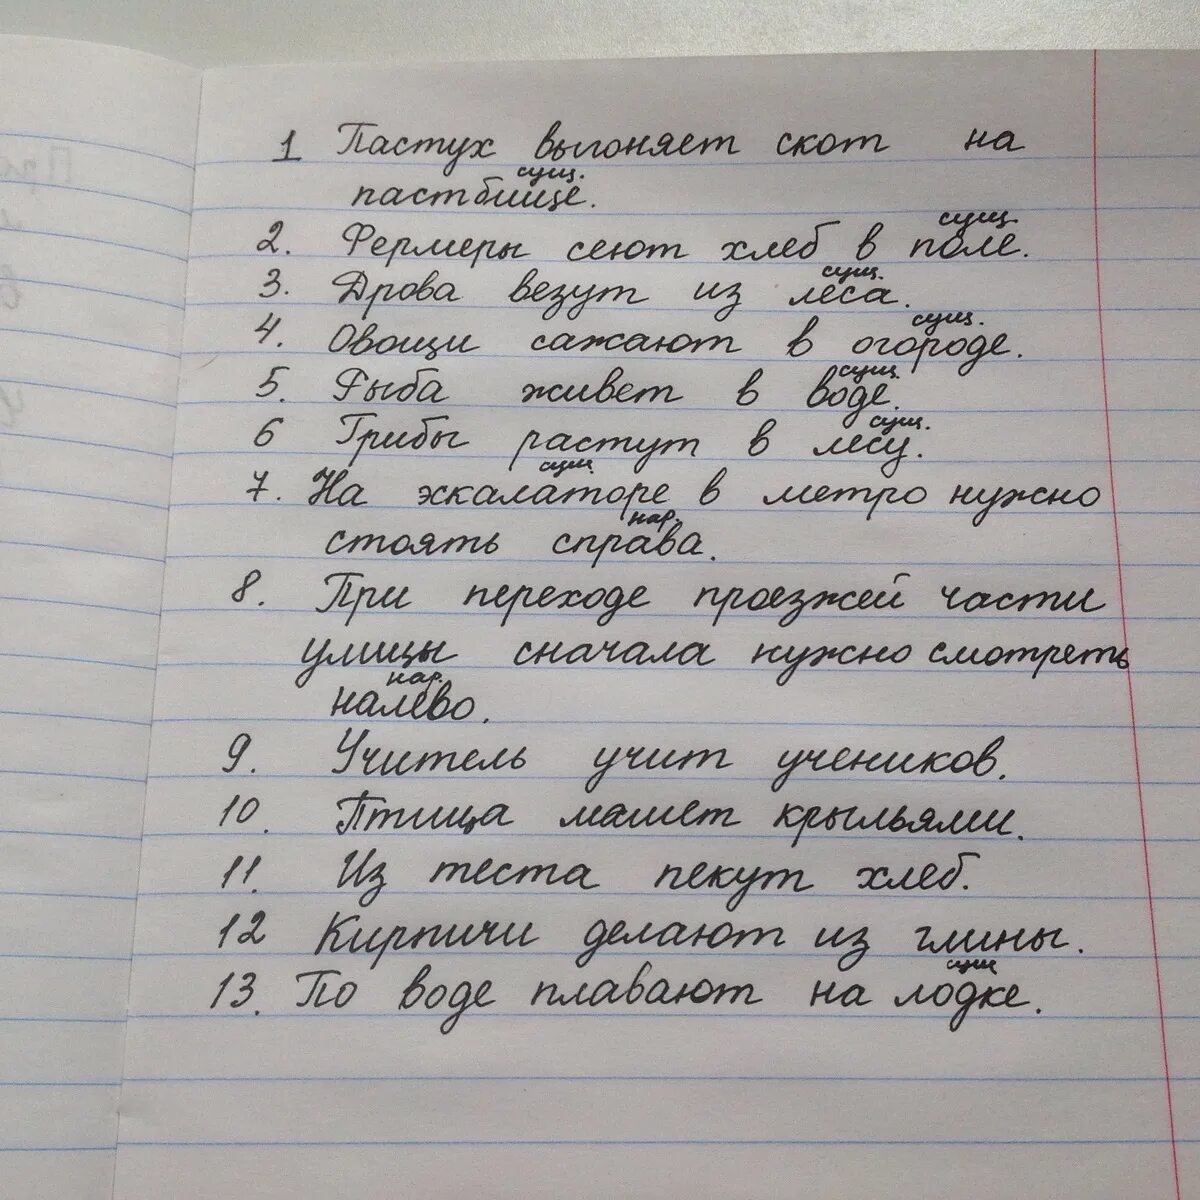 1 Пастух выгоняет скот на
сущ.
пастбище.
сущ.
2. Фермеры сеют хлеб в поле.
сущ.
3. Дрова везут из леса.
сущ.
4. Овощи сажают в огороде.
сущ.
5. Рыба живет в воде.
сущ.
6 Грибы растут в лесу.
сущ.
7. На эскалаторе в метро нужно
нар.
стоять справа.
8. При переходе проезжей части
улицы сначала нужно смотреть
нар.
налево.
9. Учитель учит учеников.
10. Птица машет крыльями.
11. Из теста пекут хлеб.
12 Кирпичи делают из глины.
сущ
13. По воде плавают на лодке.